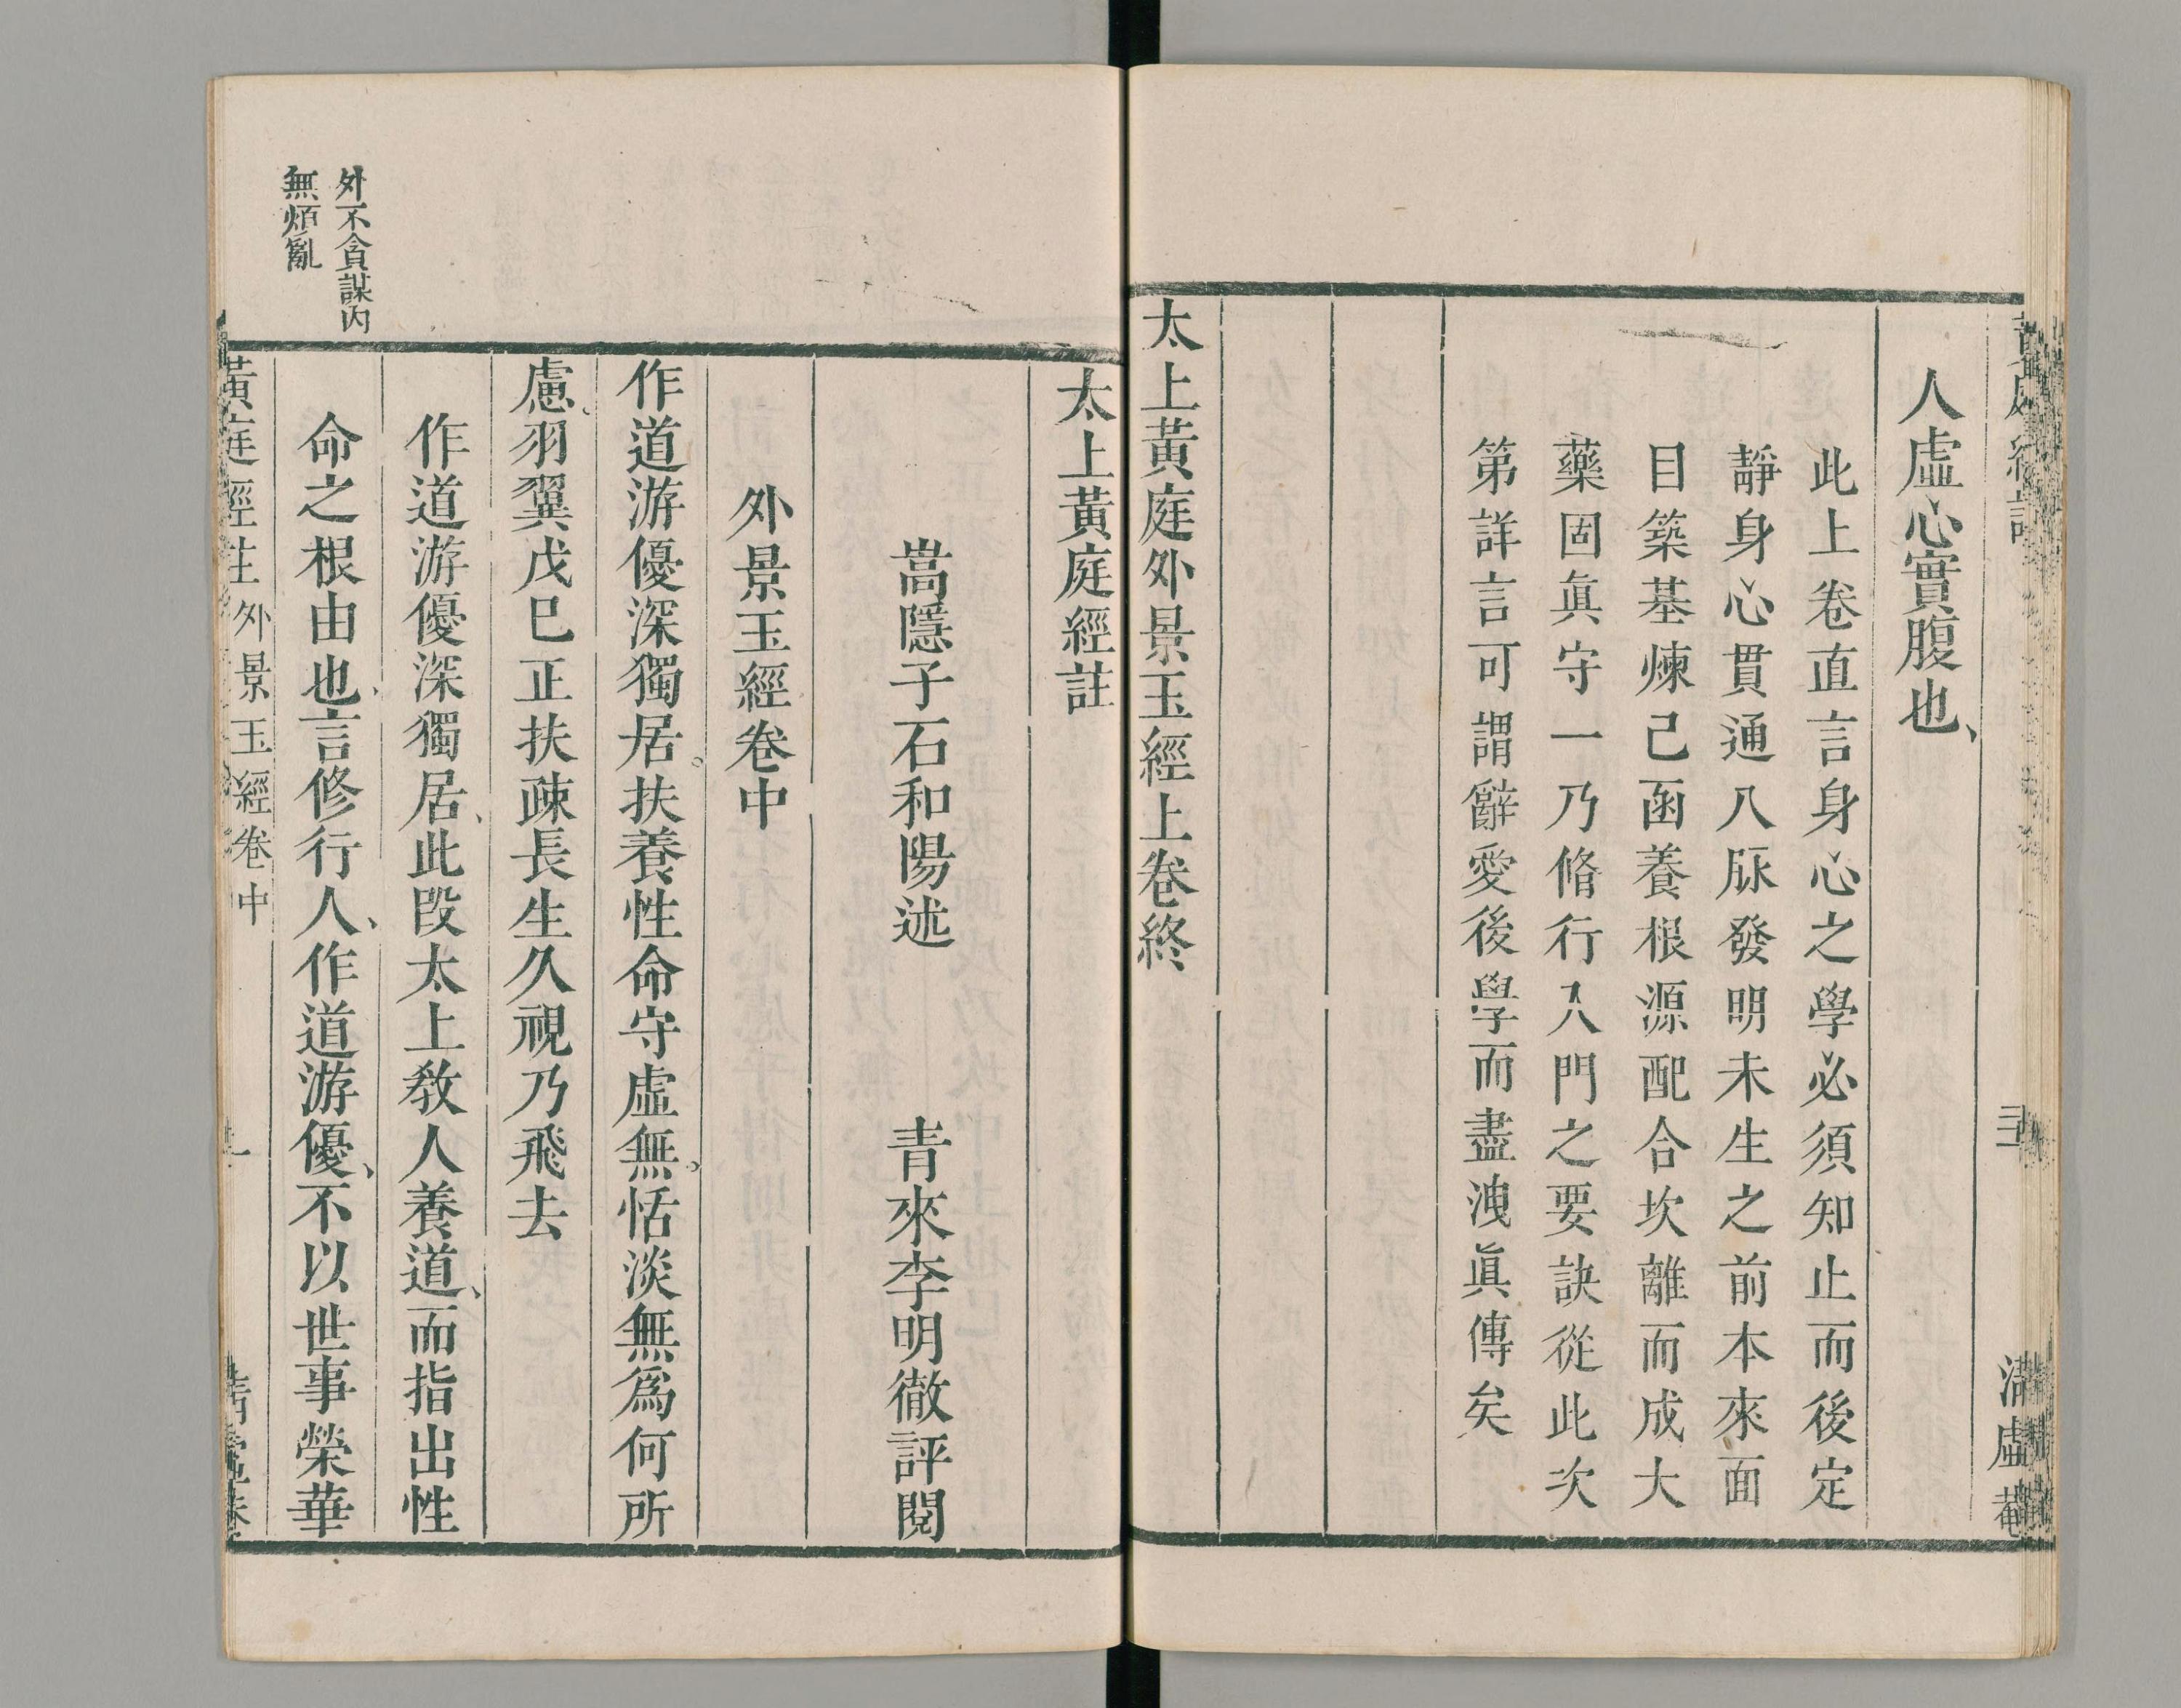 人虛心實腹也、
此上卷直言身心之學必須知止而後定
靜身心貫通八脉發明未生之前本來面
目築基煉己函養根源配合坎離而成大
藥固眞守一乃脩行入門之要訣從此次
第詳言可謂辭愛後學而盡洩眞傳矣
太上黃庭外景玉經上卷終
太上黃庭經註
嵩隱子石和陽述 青來李明徹評閱
外景玉經卷中
作道游優深獨居。扶養性命守虛無。恬淡無爲何所
慮、羽翼戊巳正扶疎長生久視乃飛去
作道游優深獨居、此段太上教人養道、而指出性
命之根由也、言修行人、作道游優、不以世事榮華
外不貪謀內
無煩亂
黃庭經註 外景玉經卷中 一